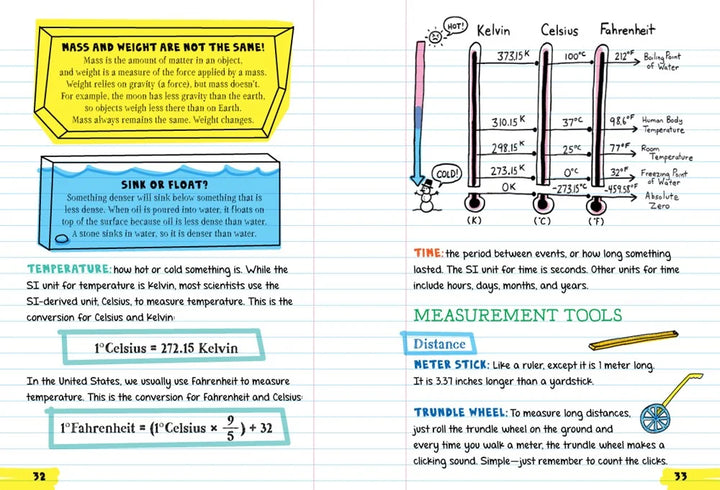 MASS AND WEIGHT ARE NOT THE SAME!
Mass is the amount of matter in an object,
and weight is a measure of the force applied by a mass.
Weight relies on gravity (a force), but mass doesn't.
For example, the moon has less gravity than the earth,
so objects weigh less there than on Earth.
Mass always remains the same. Weight changes.
SINK OR FLOAT?
Something denser will sink below something that is
less dense. When oil is poured into water, it floats on
top of the surface because oil is less dense than water.
A stone sinks in water, so it is denser than water.
TEMPERATURE: how hot or cold something is. While the
SI unit for temperature is Kelvin, most scientists use the
SI-derived unit, Celsius, to measure temperature. This is the
conversion for Celsius and Kelvin:
1°Celsius = 272.15 Kelvin
In the United States, we usually use Fahrenheit to measure
temperature. This is the conversion for Fahrenheit and Celsius:
1°Fahrenheit = (1°Celsius × 9/5) + 32
32
HOT!
Kelvin Celsius Fahrenheit
373.15 K 100°C 212°F Boiling Point of Water
310.15 K 37°C 98.6°F Human Body Temperature
298.15 K 25°C 77°F Room Temperature
273.15 K 0°C 32°F Freezing Point of Water
COLD!
0K -273.15°C -459.58°F Absolute Zero
(K) (°C) (°F)
TIME: the period between events, or how long something
lasted. The SI unit for time is seconds. Other units for time
include hours, days, months, and years.
MEASUREMENT TOOLS
Distance
METER STICK: Like a ruler, except it is 1 meter long.
It is 3.37 inches longer than a yardstick.
TRUNDLE WHEEL: To measure long distances,
just roll the trundle wheel on the ground and
every time you walk a meter, the trundle wheel makes a
clicking sound. Simple—just remember to count the clicks.
33